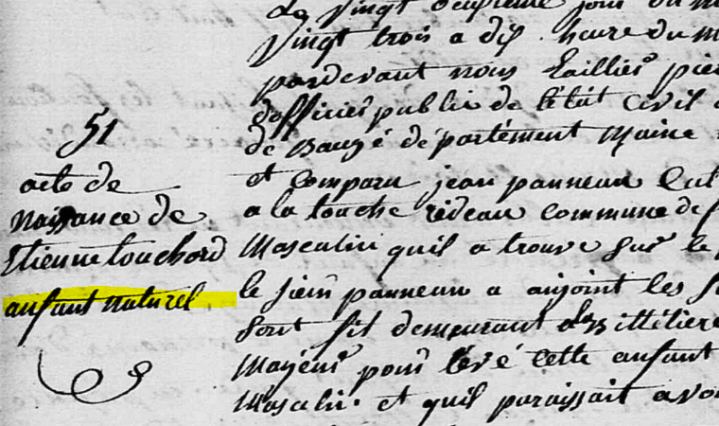 51
acte de
naissance de
Etienne touchard
anfant naturel
vingt trois a dix heure du m
pardevant nous pier
d'officier public de l'état civil
de Baugé département Maine
et comparu jean panneau cult
a la touche rideau commune de
Masculin quil a trouve sur le
le sieur panneau a anjoint les
sont fil demeurant
pour levé cette anfant
Masculin et quil paraissait avo